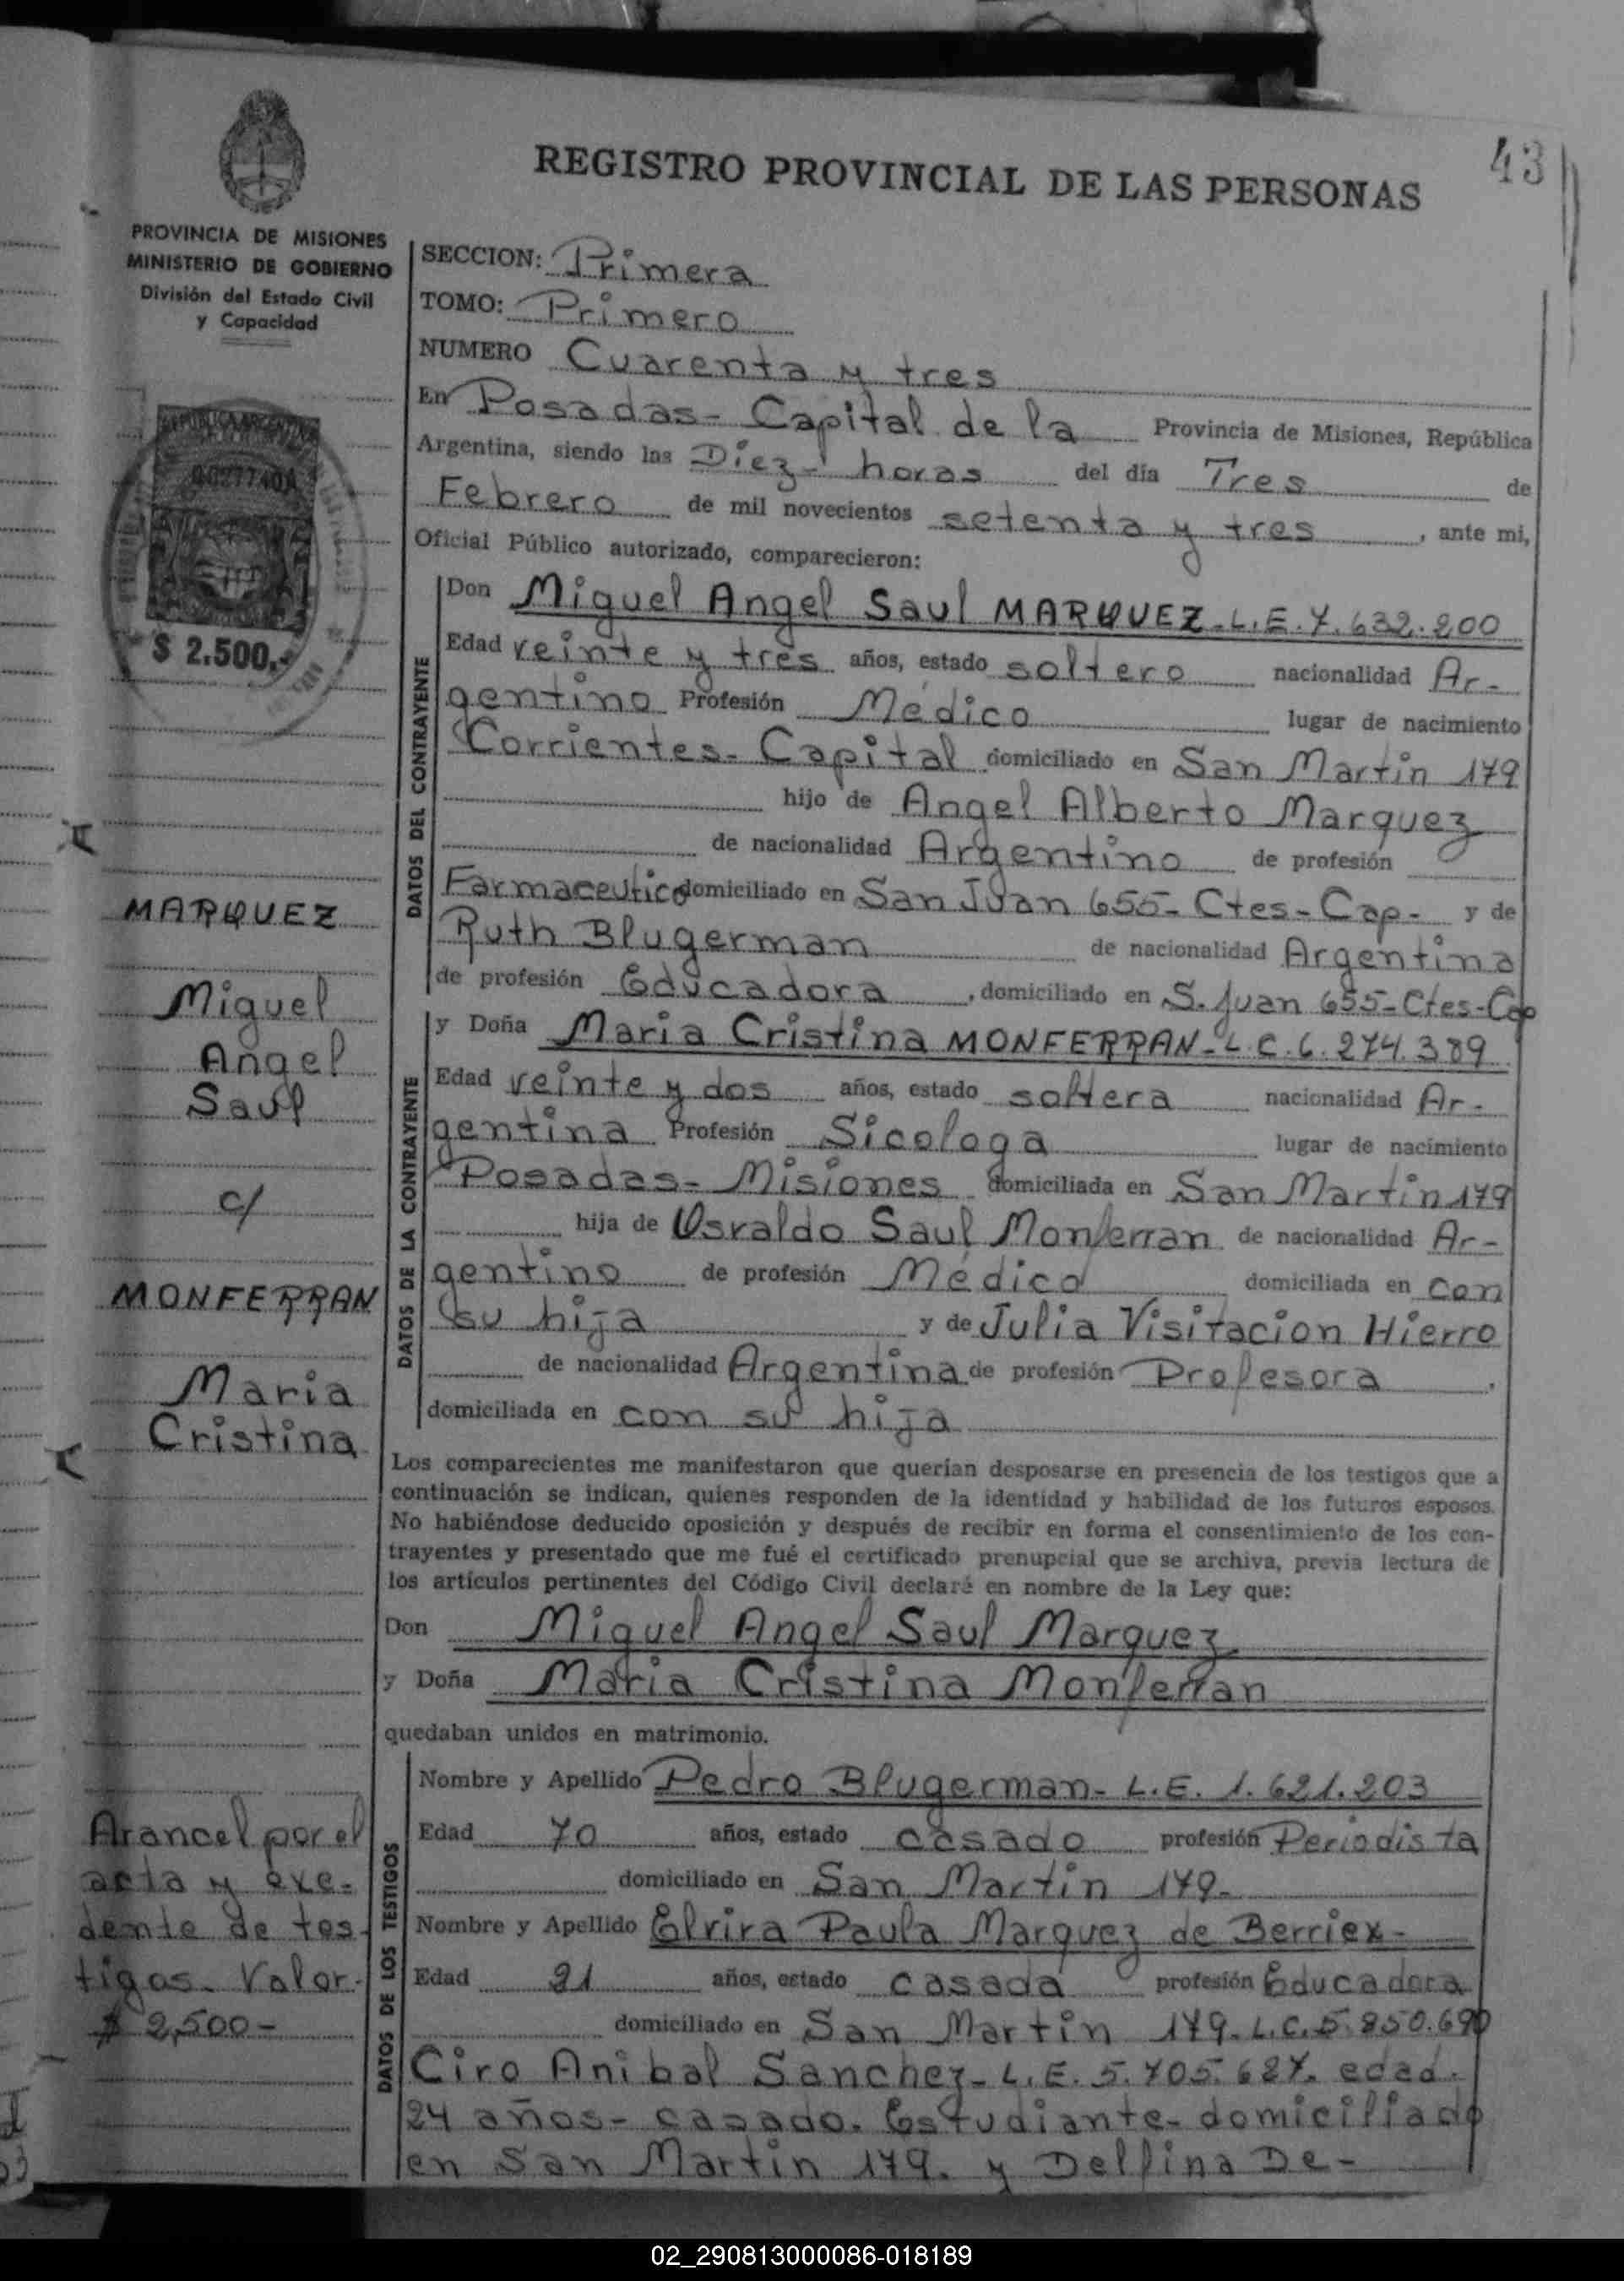 43
REGISTRO PROVINCIAL DE LAS PERSONAS
PROVINCIA DE MISIONES
MINISTERIO DE GOBIERNO
División del Estado Civil
y Capacidad
SECCION: Primera
TOMO: Primero
NUMERO Cuarenta y tres
En Posadas - Capital de la Provincia de Misiones, República
Argentina, siendo las Diez - horas del día Tres de
Febrero de mil novecientos setenta y tres, ante mi,
Oficial Público autorizado, comparecieron:
REPUBLICA ARGENTINA
$ 2.500.-
DATOS DEL CONTRAYENTE
Don Miguel Angel Saul MARQUEZ - L.E. 7.632.200
Edad veinte y tres años, estado soltero nacionalidad Ar-
gentino Profesión Médico lugar de nacimiento
Corrientes - Capital domiciliado en San Martin 179
hijo de Angel Alberto Marquez
de nacionalidad Argentino de profesión
Farmaceutico domiciliado en San Juan 655 - Ctes - Cap - y de
Ruth Blugerman de nacionalidad Argentina
de profesión Educadora, domiciliado en S. Juan 655 - Ctes - Cap
DATOS DE LA CONTRAYENTE
y Doña Maria Cristina MONFERRAN - L.C. 6.274.389
Edad veinte y dos años, estado soltera nacionalidad Ar-
gentina Profesión Sicologa lugar de nacimiento
Posadas - Misiones domiciliada en San Martin 179
hija de Osvaldo Saul Monferran de nacionalidad Ar-
gentino de profesión Médico domiciliada en con
su hija y de Julia Visitacion Hierro
de nacionalidad Argentina de profesión Profesora,
domiciliada en con su hija
MARQUEZ
Miguel
Angel
Saul
c/
MONFERRAN
Maria
Cristina
Los comparecientes me manifestaron que querían desposarse en presencia de los testigos que a
continuación se indican, quienes responden de la identidad y habilidad de los futuros esposos.
No habiéndose deducido oposición y después de recibir en forma el consentimiento de los con-
trayentes y presentado que me fué el certificado prenupcial que se archiva, previa lectura de
los artículos pertinentes del Código Civil declaré en nombre de la Ley que:
Don Miguel Angel Saul Marquez
y Doña Maria Cristina Monferran
quedaban unidos en matrimonio.
DATOS DE LOS TESTIGOS
Nombre y Apellido Pedro Blugerman - L.E. 1.621.203
Edad 70 años, estado casado profesión Periodista
domiciliado en San Martin 179 -
Nombre y Apellido Elvira Paula Marquez de Berriex -
Edad 21 años, estado casada profesión Educadora
domiciliado en San Martin 179 - L.C. 5.850.690
Ciro Anibal Sanchez - L.E. 5.705.627. edad.
24 años - casado. Estudiante - domiciliado
en San Martin 179. y Delfina De -
Arancel por el
acta y exe-
dente de tes-
tigos. Valor.
$ 2,500 -
02_290813000086-018189